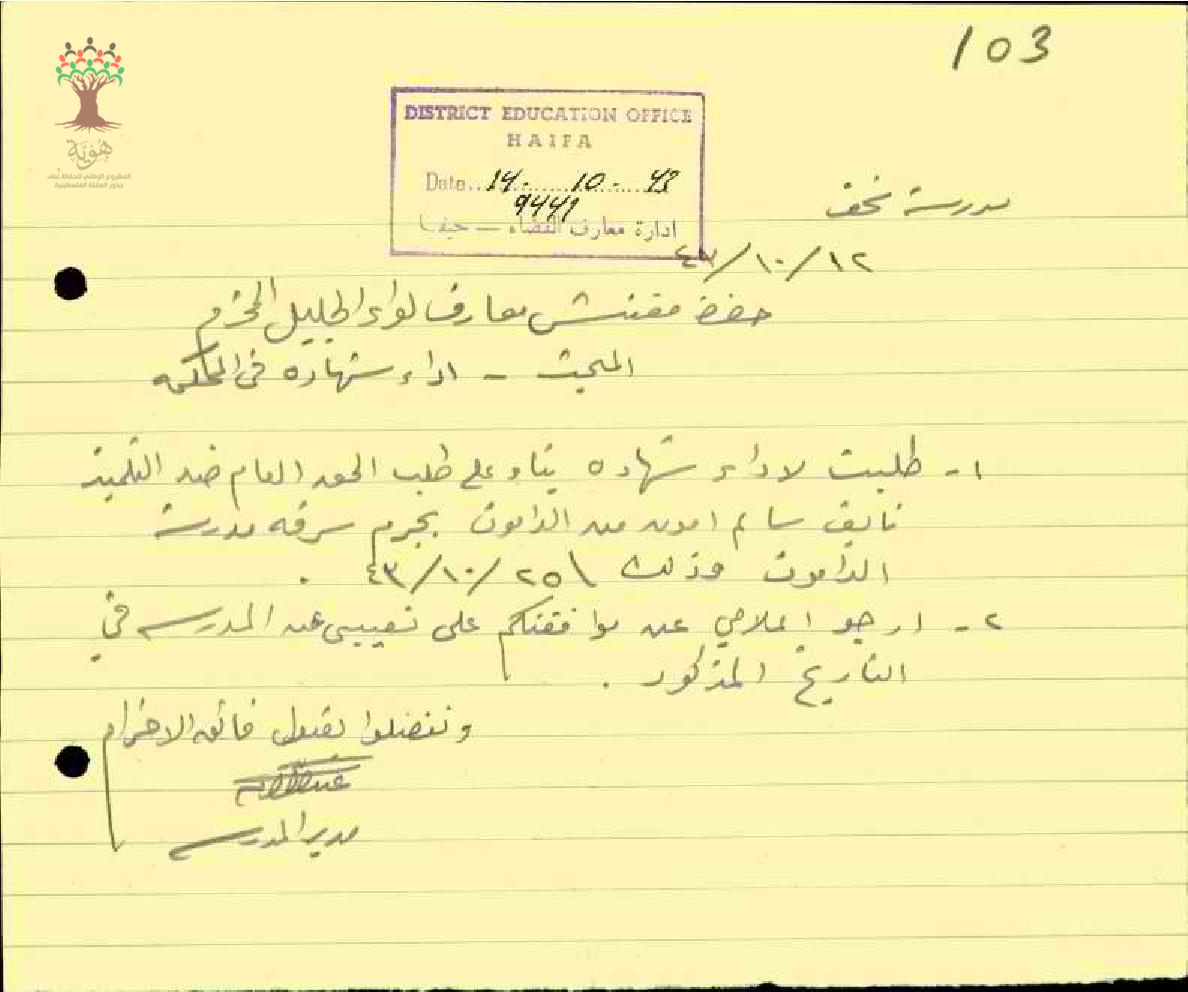 103
هوية
المشروع الوطني للحفاظ على
جذور العائلة الفلسطينية
DISTRICT EDUCATION OFFICE
HAIFA
Date.. 14. 10. 43
9441
ادارة معارف القضاء — حيفا
مدرسة نحف
٤٣/١٠/١٢
حضرة مفتش معارف لواء الجليل المحترم
المبحث - اداء شهاده في المحكمه
١- طلبت لاداء شهاده بناء على طلب الحق العام ضد التلميذ
نايف سالم من الدامون بجرم سرقه مدرسة
الدامون وذلك ٤٣/١٠/٢٥ .
٢- ارجو اعلامي عن موافقتكم على تغيبي عن المدرسه في
التاريخ المذكور .
وتفضلوا بقبول فائق الاحترام
مدير المدرسه